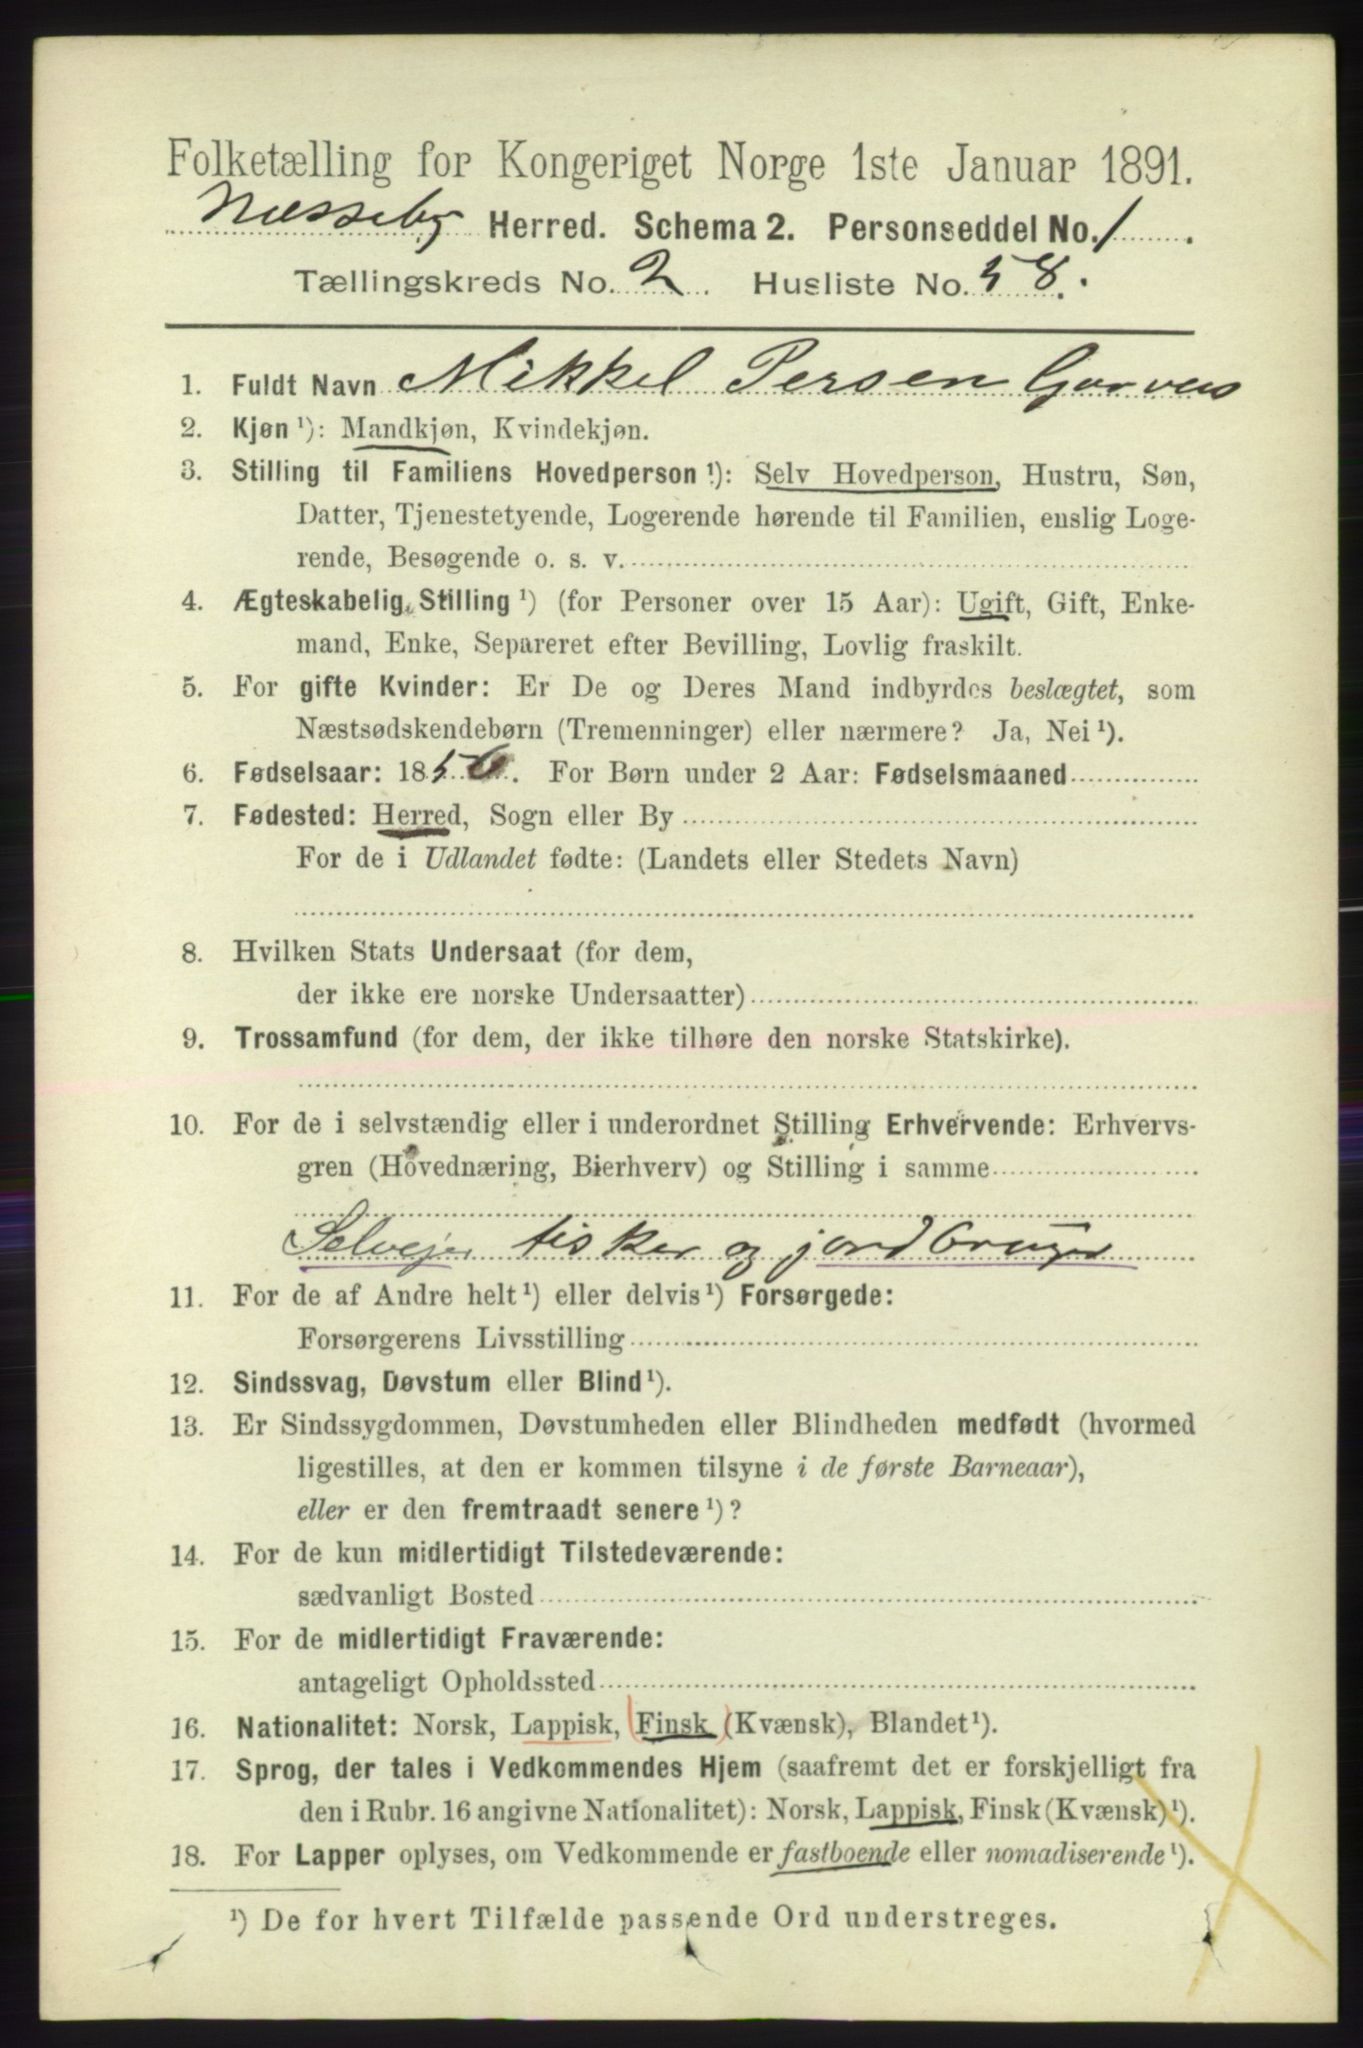 Folketælling for Kongeriget Norge 1ste Januar 1891.
Næsseby Herred. Schema 2. Personseddel No. 1.
Tællingskreds No. 2. Husliste No. 58.
1. Fuldt Navn Mikkel Persen
2. Kjøn ¹): Mandkjøn, Kvindekjøn.
3. Stilling til Familiens Hovedperson ¹): Selv Hovedperson, Hustru, Søn,
Datter, Tjenestetyende, Logerende hørende til Familien, enslig Loge-
rende, Besøgende o. s. v.
4. Ægteskabelig Stilling ¹) (for Personer over 15 Aar): Ugift, Gift, Enke-
mand, Enke, Separeret efter Bevilling, Lovlig fraskilt.
5. For gifte Kvinder: Er De og Deres Mand indbyrdes beslægtet, som
Næstsødskendebørn (Tremenninger) eller nærmere? Ja, Nei ¹).
6. Fødselsaar: 1856. For Børn under 2 Aar: Fødselsmaaned
7. Fødested: Herred, Sogn eller By
For de i Udlandet fødte: (Landets eller Stedets Navn)
8. Hvilken Stats Undersaat (for dem,
der ikke ere norske Undersaatter)
9. Trossamfund (for dem, der ikke tilhøre den norske Statskirke).
10. For de i selvstændig eller i underordnet Stilling Erhvervende: Erhvervs-
gren (Hovednæring, Bierhverv) og Stilling i samme
Selvejer fisker og jordbruger
11. For de af Andre helt ¹) eller delvis ¹) Forsørgede:
Forsørgerens Livsstilling
12. Sindssvag, Døvstum eller Blind ¹).
13. Er Sindssygdommen, Døvstumheden eller Blindheden medfødt (hvormed
ligestilles, at den er kommen tilsyne i de første Barneaar),
eller er den fremtraadt senere ¹)?
14. For de kun midlertidigt Tilstedeværende:
sædvanligt Bosted
15. For de midlertidigt Fraværende:
antageligt Opholdssted
16. Nationalitet: Norsk, Lappisk, Finsk (Kvænsk), Blandet ¹).
17. Sprog, der tales i Vedkommendes Hjem (saafremt det er forskjelligt fra
den i Rubr. 16 angivne Nationalitet): Norsk, Lappisk, Finsk (Kvænsk) ¹).
18. For Lapper oplyses, om Vedkommende er fastboende eller nomadiserende ¹).
¹) De for hvert Tilfælde passende Ord understreges.